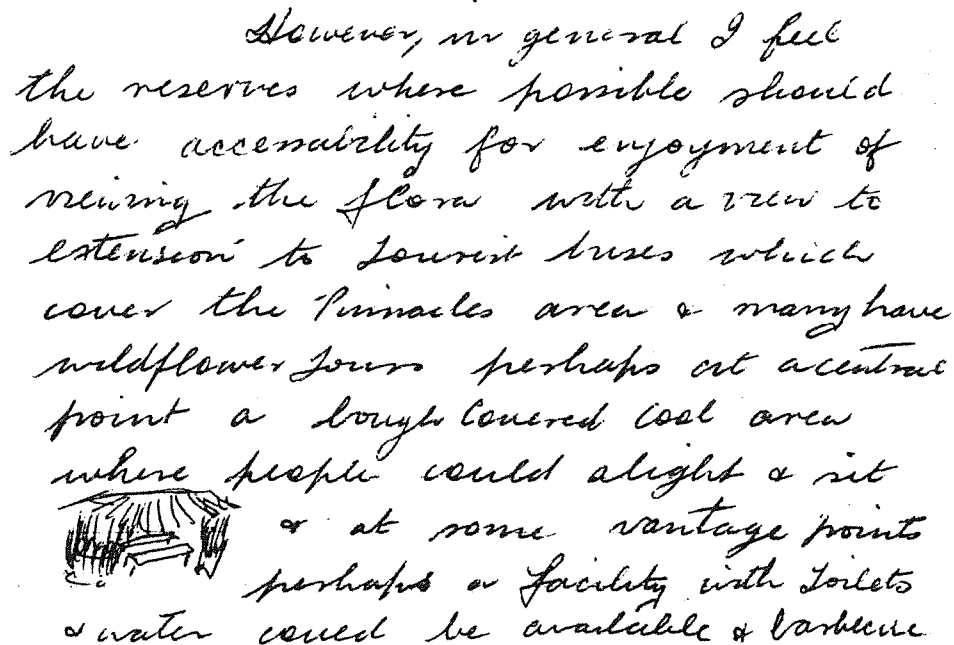 However, in general I feel
the reserves where possible should
have accessability for enjoyment of
viewing the flora with a view to
extension to Tourist buses which
cover the Pinnacles area & many have
wildflower Tours perhaps at a central
point a bough Covered Cool area
where people could alight & sit
& at some vantage points
perhaps a facility with Toilets
& water could be available & barbecue